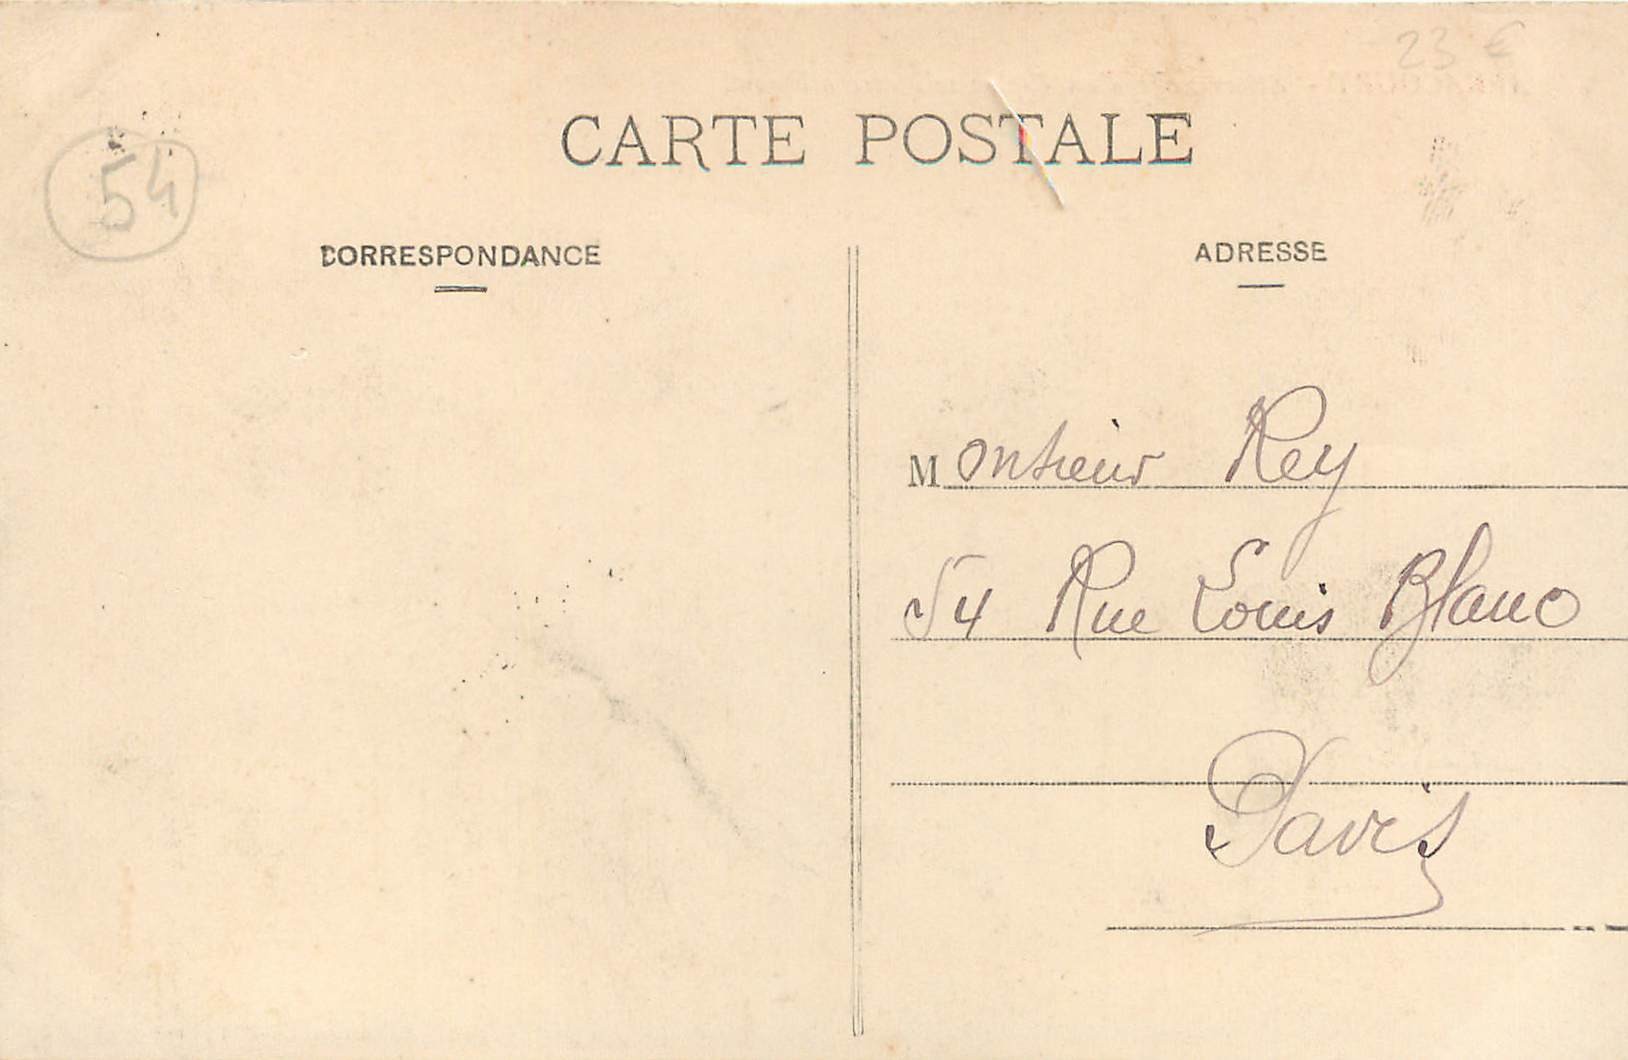 23 €
CARTE POSTALE
54
CORRESPONDANCE
ADRESSE
Monsieur Rey
54 Rue Louis Blanc
Paris